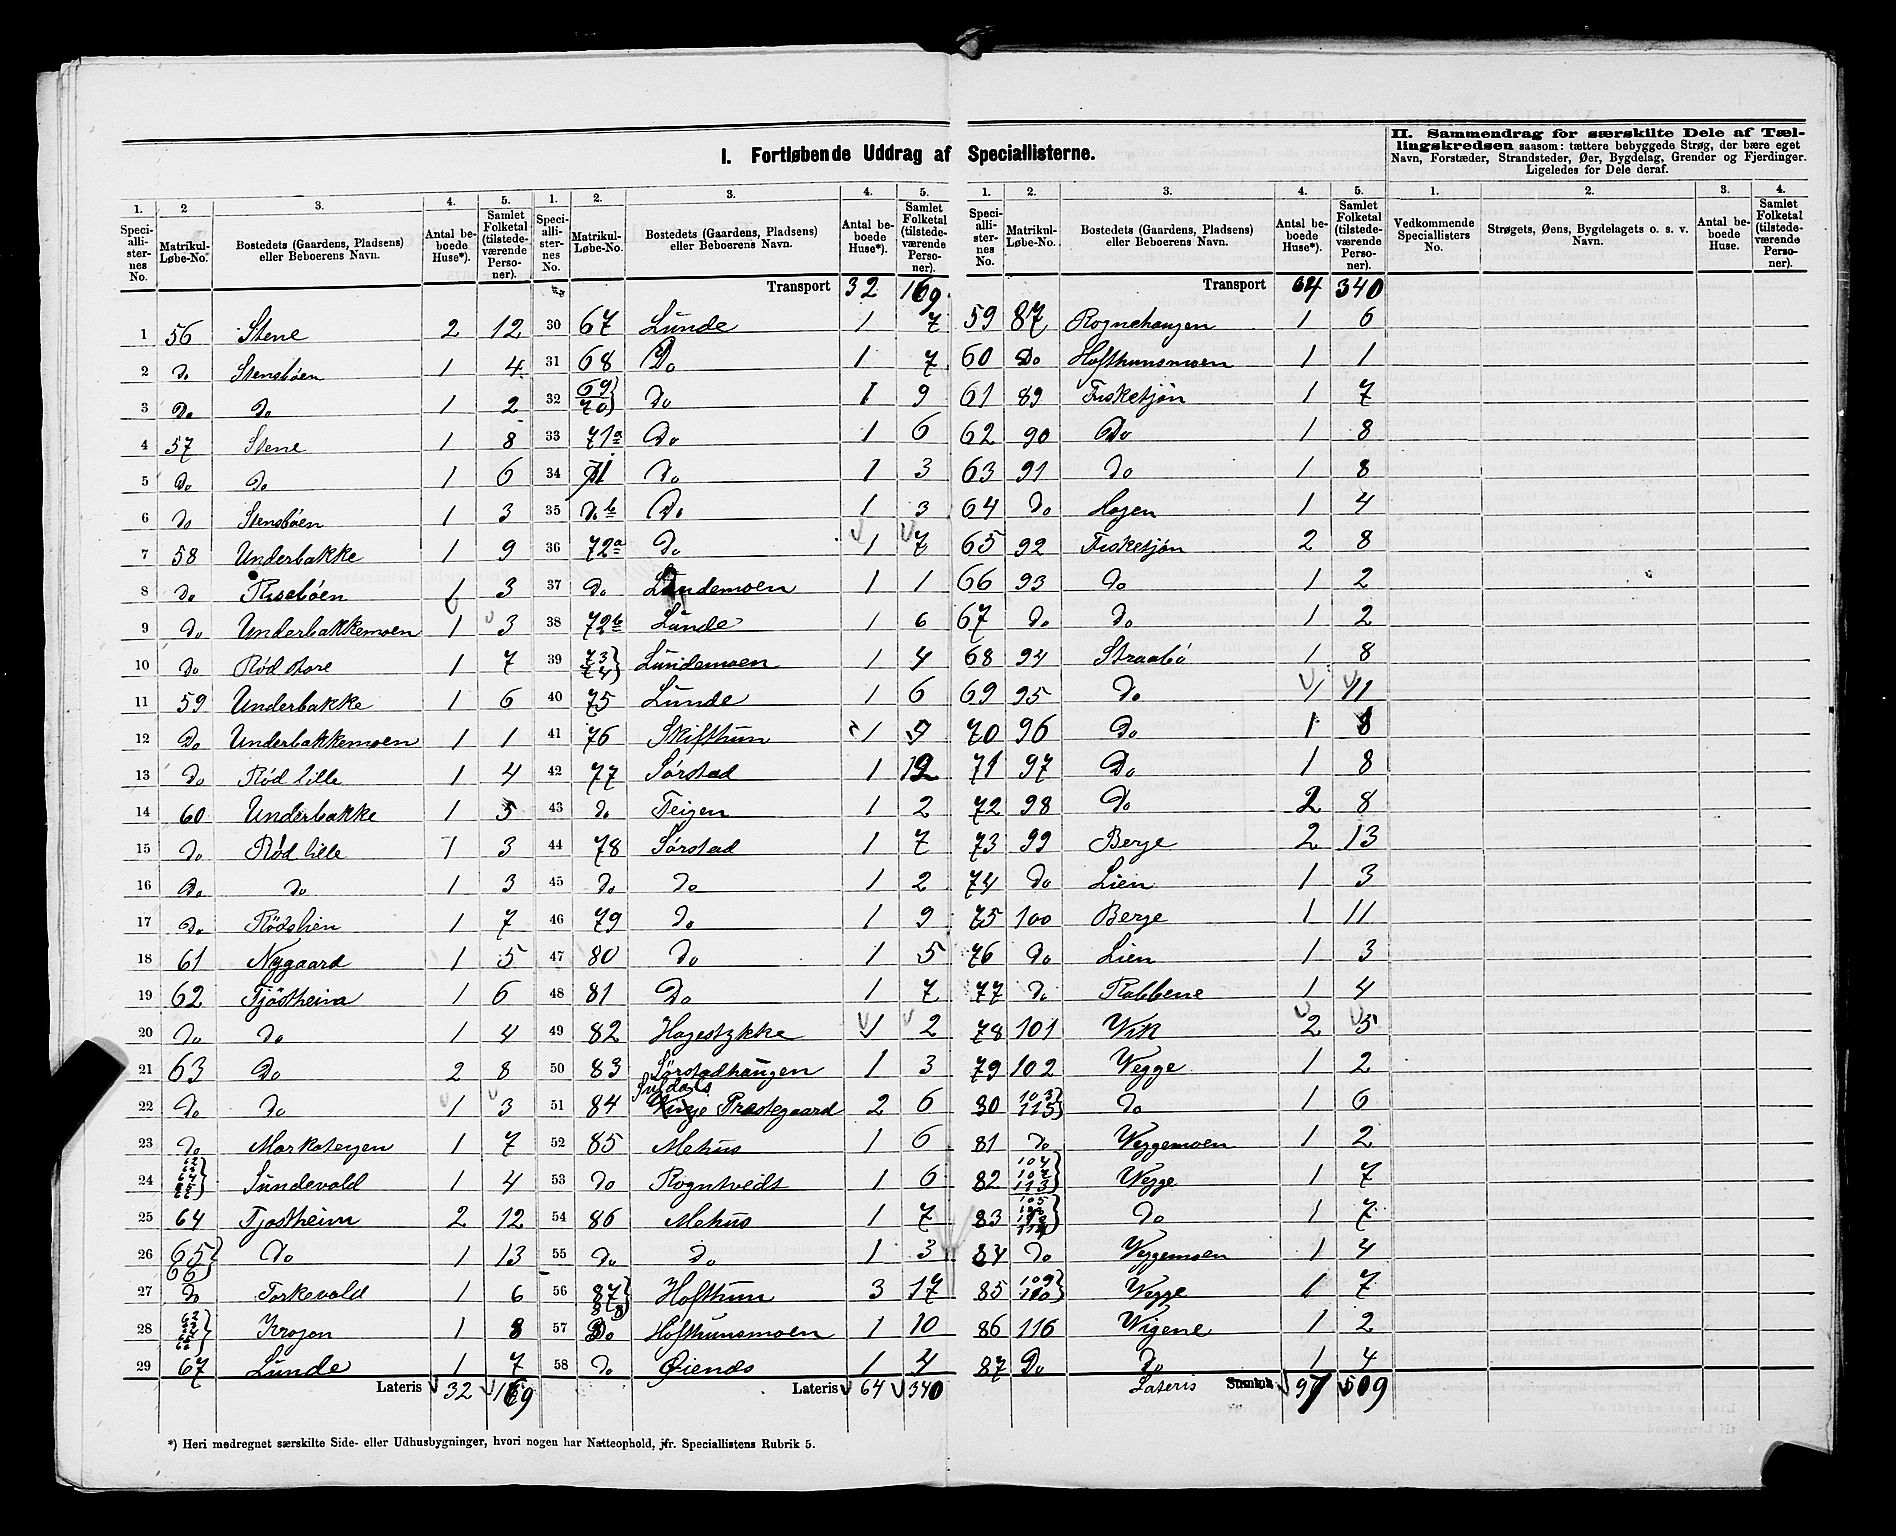 I. Fortløbende Uddrag af Speciallisterne.
II. Sammendrag for særskilte Dele af Tællingskredsen saasom: tættere bebyggede Strøg, der bære eget Navn, Forstæder, Strandsteder, Øer, Bygdelag, Grender og Fjerdinger. Ligeledes for Dele deraf.
1. 2 3. 4. 5. 1. 2. 3. 4. 5. 1. 2. 3. 4. 5. 1. 2. 3. 4.
Speciallisternes No. Matrikul-Løbe-No. Bostedets (Gaardens, Pladsens) eller Beboerens Navn. Antal beboede Huse*). Samlet Folketal (tilstedeværende Personer).
Speciallisternes No. Matrikul-Løbe-No. Bostedets (Gaardens, Pladsens) eller Beboerens Navn. Antal beboede Huse*). Samlet Folketal (tilstedeværende Personer).
Speciallisternes No. Matrikul-Løbe-No. Bostedets (Gaardens, Pladsens) eller Beboerens Navn. Antal beboede Huse*). Samlet Folketal (tilstedeværende Personer).
Vedkommende Speciallisters No. Strøgets, Øens, Bygdelagets o. s. v. Navn. Antal beboede Huse. Samlet Folketal (tilstedeværende Personer).
1 56 Stene 2 12
2 do Stensbøen 1 4
3 Do do 1 2
4 57 Stene 1 8
5 Do Do 1 6
6 do Stensbøen 1 3
7 58 Underbakke 1 9
8 do Risebøen 1 3
9 do Underbakkemoen 1 3
10 do Rød store 1 7
11 59 Underbakke 1 6
12 Do Underbakkemoen 1 1
13 do Rød lille 1 4
14 60 Underbakke 1 5
15 do Rød lille 1 3
16 Do do 1 3
17 do Rødslien 1 7
18 61 Nygaard 1 5
19 62 Tjøstheim 1 6
20 do do 1 4
21 63 Do 2 8
22 do do 1 3
23 do Markateigen 1 7
24 Sundevold 1 4
25 64 Tjostheim 2 12
26 65 66 } Do 1 13
27 do Torkevold 1 6
28 Krogen 1 8
29 67 Lunde 1 7
Lateris 32 169
Transport 32 169
30 67 Lunde 1 7
31 68 Do 1 7
32 69 70 } do 1 9
33 71a Do 1 6
34 71 do 1 3
35 do b Do 1 3
36 72a do 1 7
37 Do Lundemoen 1 1
38 72b Lunde 1 6
39 73 74 } Lundemoen 1 4
40 75 Lunde 1 6
41 76 Skifthun 1
42 77 Sørstad 1 12
43 do Teigen 1 2
44 78 Sørstad 1 7
45 do do 1 2
46 79 do 1 9
47 80 do 1 5
48 81 Do 1 7
49 82 Hagestykke 1 2
50 83 Sørstadhaugen 1 3
51 84 Suldals Præstegaard 2 6
52 85 Mehus 1 6
53 do Rogntvedt 1 6
54 86 Mehus 1 7
55 do do 1 3
56 87 88 } Hofthun 3 17
57 Do Hofthunsmoen 1 10
58 do Øiendo 1 4
Lateris 64 340
Transport 64 340
59 87 Rognehaugen 1 6
60 Do Hofthunsmoen 1 1
61 89 Fisketjøn 1 7
62 90 Do 1 8
63 91 do 1 8
64 do Hagen 1 4
65 92 Fisketjøn 2 8
66 93 do 1 2
67 do do 1 2
68 94 Straabø 1 8
69 95 do 1 11
70 96 do 1 8
71 97 Do 1 8
72 98 do 2 8
73 99 Berge 2 13
74 do Lien 1 3
75 100 Berge 1 11
76 do Lien 1 3
77 do Rabbene 1 4
78 101 Vik 2 5
79 102 Vegge 1 2
80 103 115 } do 1 6
81 do Veggemoen 1 2
82 Vegge 1 7
83 do 1 7
84 do Veggemoen 1 4
85 109 110 } Vegge 1 7
86 116 Vigene 1 2
87 Do do 1 4
Lateris 97 509
*) Heri medregnet særskilte Side- eller Udhusbygninger, hvori nogen har Natteophold, jfr. Speciallistens Rubrik 5.